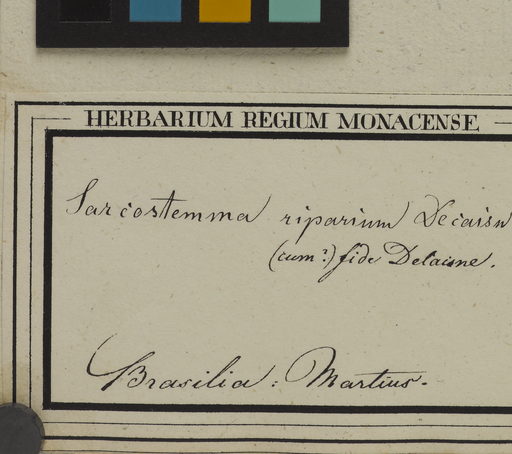 HERBARIUM REGIUM MONACENSE
Sarcostemma riparium Decaisn
(cum?) fide Delaisne.
Brasilia: Martius.